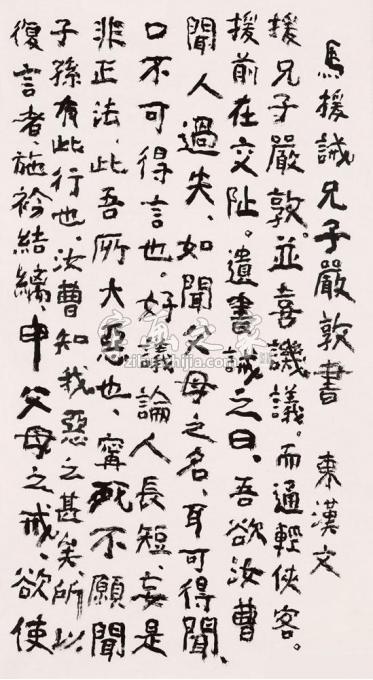 馬援誡兄子嚴敦書 東漢文
援兄子嚴敦。並喜譏議。而通輕俠客。
援前在交阯。遺書誡之曰、吾欲汝曹
聞人過失、如聞父母之名、耳可得聞、
口不可得言也。好議論人長短、妄是
非正法、此吾所大惡也、寧死不願聞
子孫有此行也。汝曹知我惡之甚矣所以
復言者、施衿結縭、申父母之戒、欲使
字画之家
zihuazhijia.com